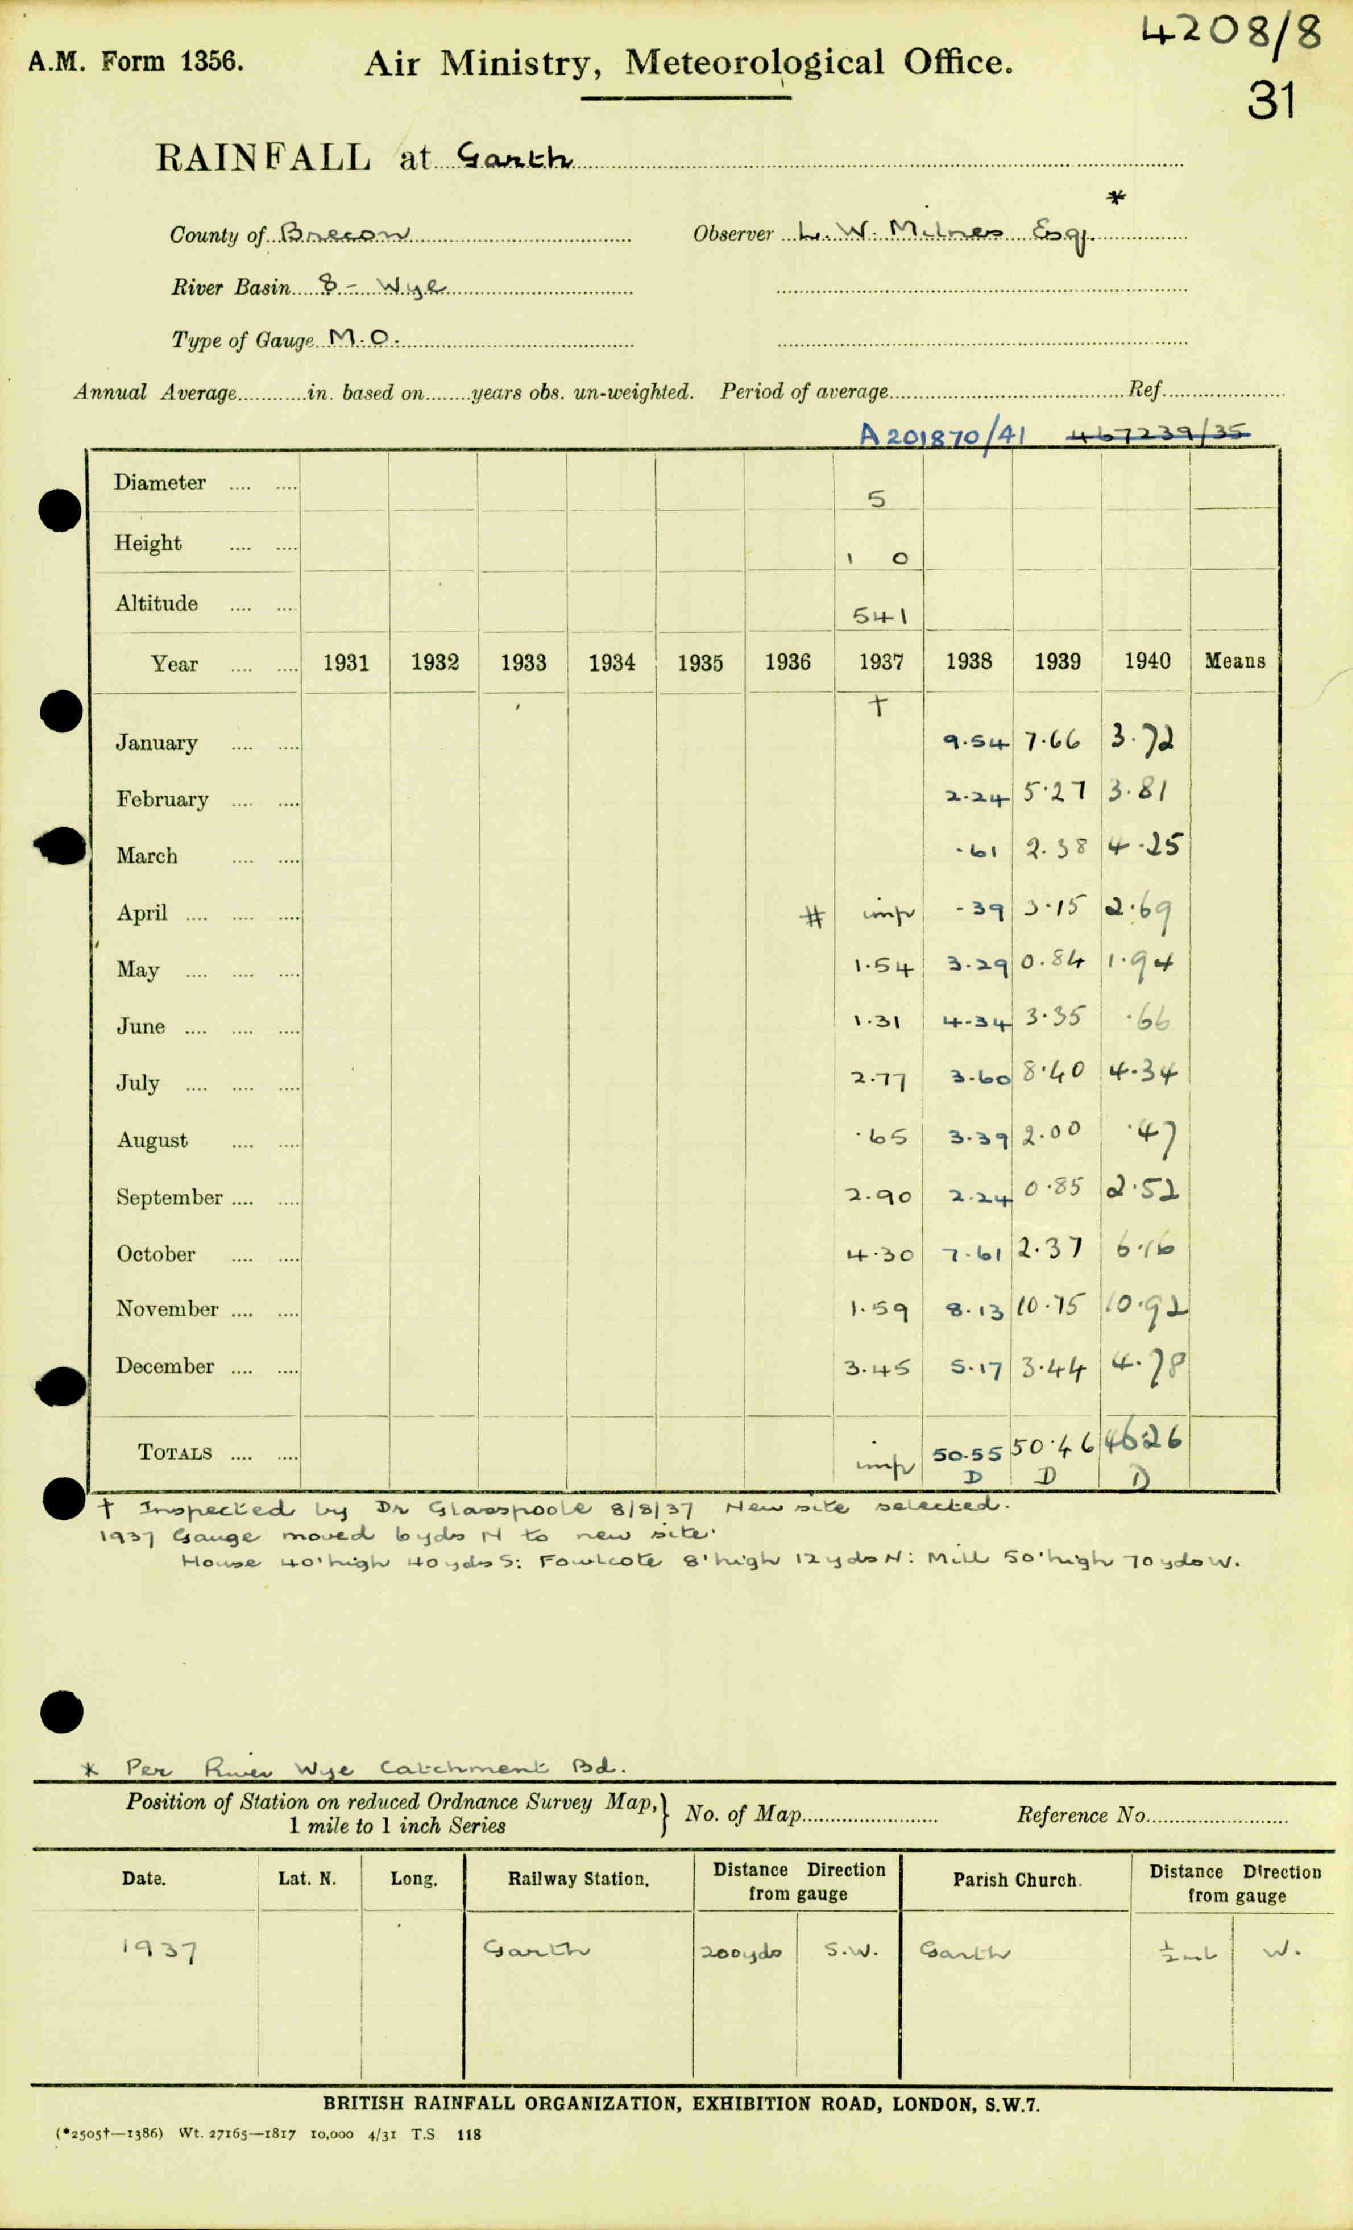 4208/8
A.M. Form 1356. Air Ministry, Meteorological Office.
31
RAINFALL at Garth
*
County of Brecon Observer L. W. Milnes Esq.
River Basin 8 - Wye
Type of Gauge M.O.
Annual Average............in. based on........years obs. un-weighted. Period of average............Ref............
A201870/41 467239/35
Diameter .... .... 5
Height .... .... 1 0
Altitude .... .... 541
Year .... .... 1931 1932 1933 1934 1935 1936 1937 1938 1939 1940 Means
†
January .... .... 9.54 7.66 3.72
February .... .... 2.24 5.27 3.81
March .... .... .61 2.38 4.25
April .... .... .... # imp .39 3.15 2.69
May .... .... .... 1.54 3.29 0.84 1.94
June .... .... .... 1.31 4.34 3.35 .66
July .... .... .... 2.77 3.60 8.40 4.34
August .... .... .65 3.39 2.00 .47
September .... .... 2.90 2.24 0.85 2.52
October .... .... 4.30 7.61 2.37 6.16
November .... .... 1.59 8.13 10.75 10.92
December .... .... 3.45 5.17 3.44 4.78
TOTALS .... .... imp 50.55 50.46 46.26
D D D
† Inspected by Dr Glasspoole 8/8/37 New site selected.
1937 Gauge moved 6yds N to new site.
House 40' high 40yds S: Fowlcote 8' high 12yds N: Mill 50' high 70yds W.
* Per River Wye Catchment Bd.
Position of Station on reduced Ordnance Survey Map, } No. of Map........................ Reference No.........................
1 mile to 1 inch Series
Date. Lat. N. Long. Railway Station. Distance Direction from gauge Parish Church. Distance Direction from gauge
1937 Garth 200yds S.W. Garth ½ml W.
BRITISH RAINFALL ORGANIZATION, EXHIBITION ROAD, LONDON, S.W.7.
(*2505†—1386) Wt. 27165—1817 10,000 4/31 T.S 118